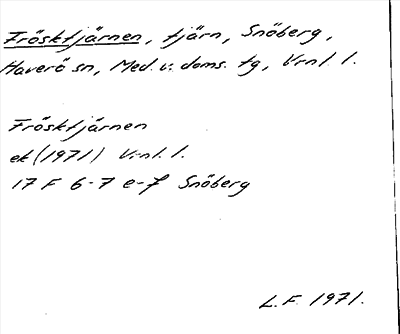 Frösktjärnen, tjärn, Snöberg,
Haverö sn, Med. v. doms. tg, Vrnl. l.
Frösktjärnen
ek (1971) Vrnl. l.
17 F 6-7 e-f Snöberg
L.F. 1971.